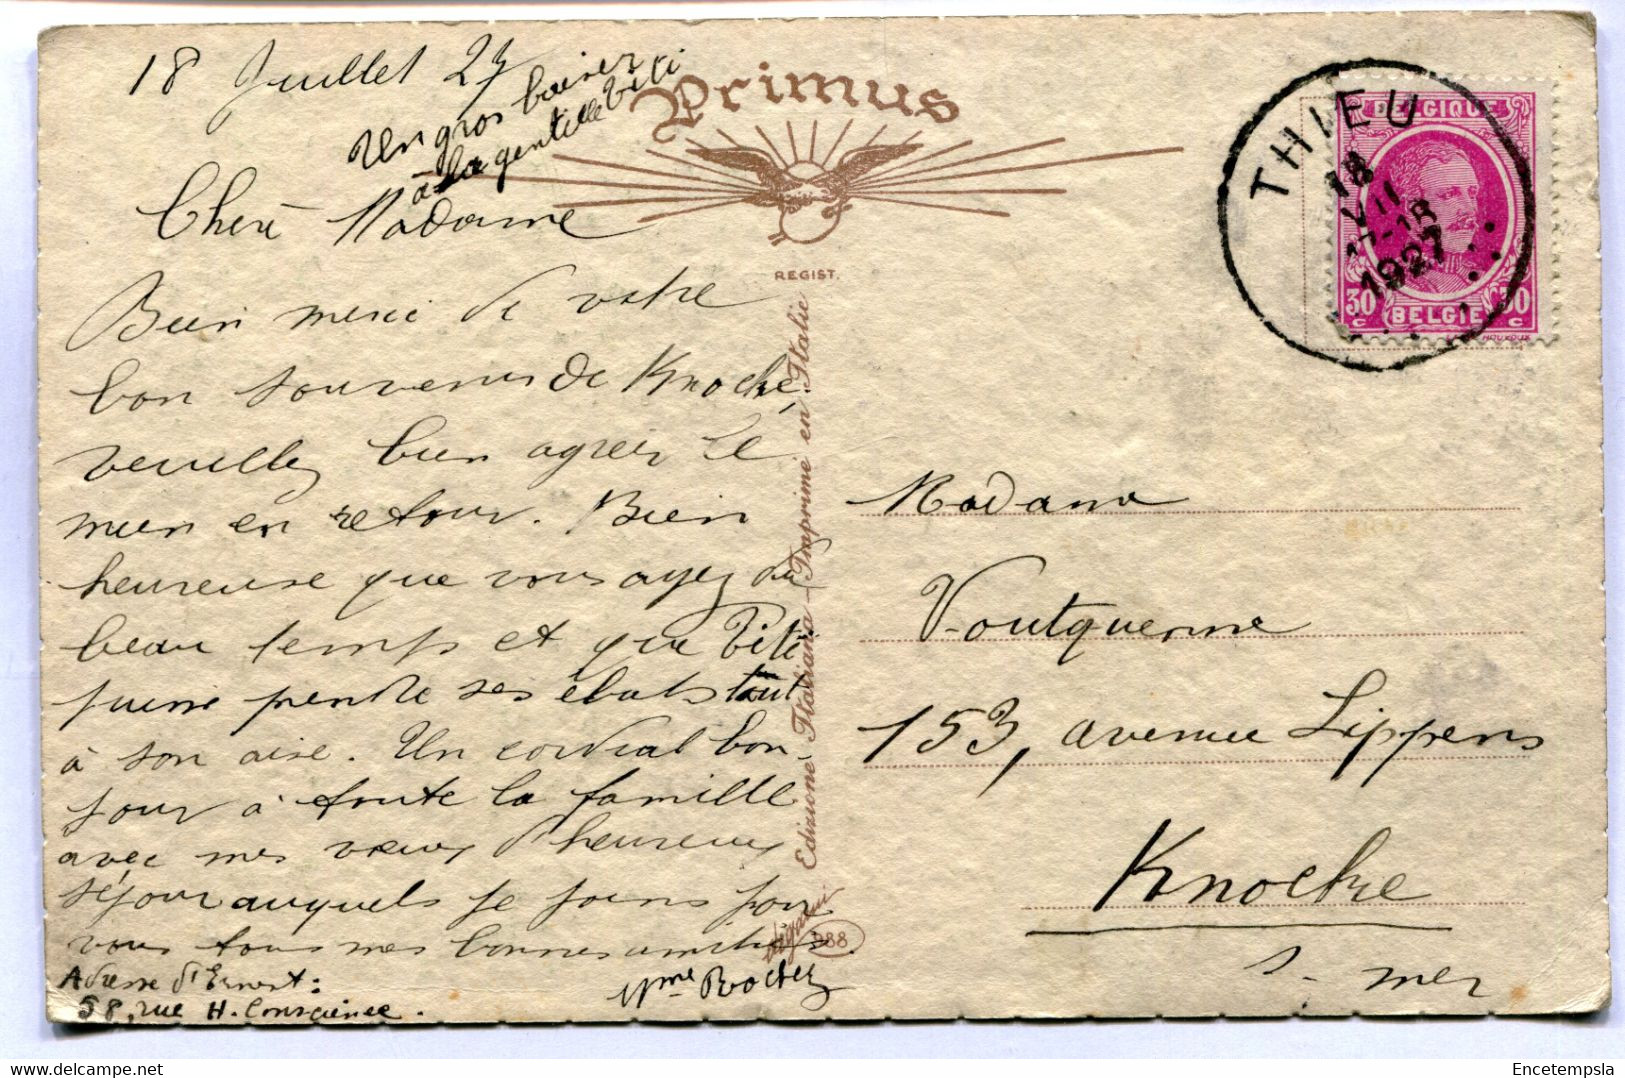 18 Juillet 27
Un gros baiser
à la gentille Titi
Chère Madame
Bien merci de votre
bon souvenir de Knocke,
veuillez bien agréer le
mien en retour. Bien
heureuse que vous ayez du
beau temps et que Titi
puisse prendre ses ébats tout
à son aise. Un cordial bon
jour à toute la famille
avec mes vœux d'heureux
séjour auxquels je joins pour
vous tous mes bonnes amitiés.
Mme
Adresse d'Ernest:
58, rue H. Conscience.
Primus
REGIST.
Edizione Italiana - Imprimé en Italie
988
THIEU
18
VII
17-18
1927
BELGIQUE
30 c
BELGIE
30 c
HOUYOUX
Madame
Voutquenne
153, avenue Lippens
Knocke
s- mer
Encetempsla